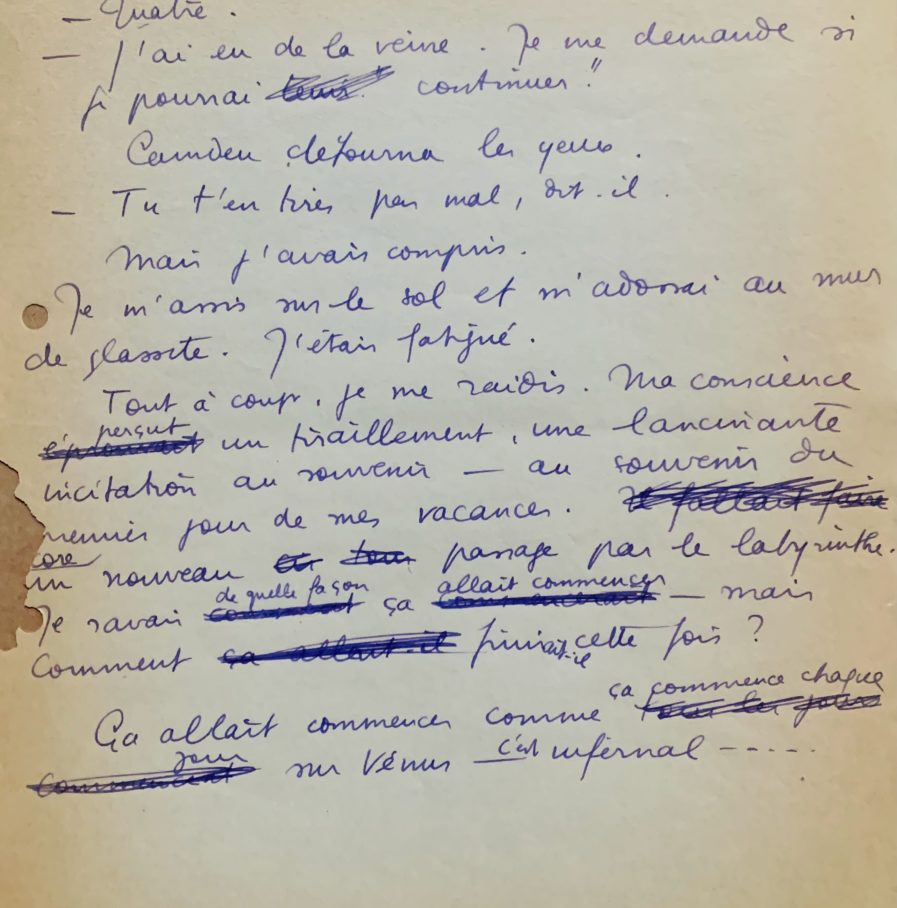 — Quatre.
— J'ai eu de la veine. Je me demande si
je pourrai tenir continuer"
Camden détourna les yeux.
— Tu t'en tires pas mal, dit-il.
Mais j'avais compris.
Je m'assis sur le sol et m'adossai au mur
de glassite. J'étais fatigué.
Tout à coup, je me raidis. Ma conscience
perçut
éprouvait un tiraillement, une lancinante
incitation au souvenir — au souvenir du
premier jour de mes vacances. Il fallait faire
core
un nouveau passage par le labyrinthe.
de quelle façon allait commencer
Je savais comment ça commencerait — mais
Comment ça allait-il finirait-il cette fois ?
ça commence chaque
Ça allait commencer comme tous les jours
jour
commencent sur Vénus c'est infernal -----